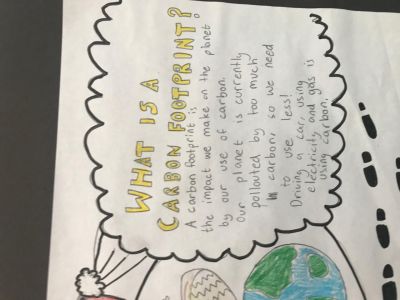 WHAT IS A
CARBON FOOTPRINT?
A carbon footprint is
the impact we make on the planet
by our use of carbon.
Our planet is currently
pollouted by too much
carbon, so we need
to use less!
Driving a car, using
electricity and gas is
using carbon.